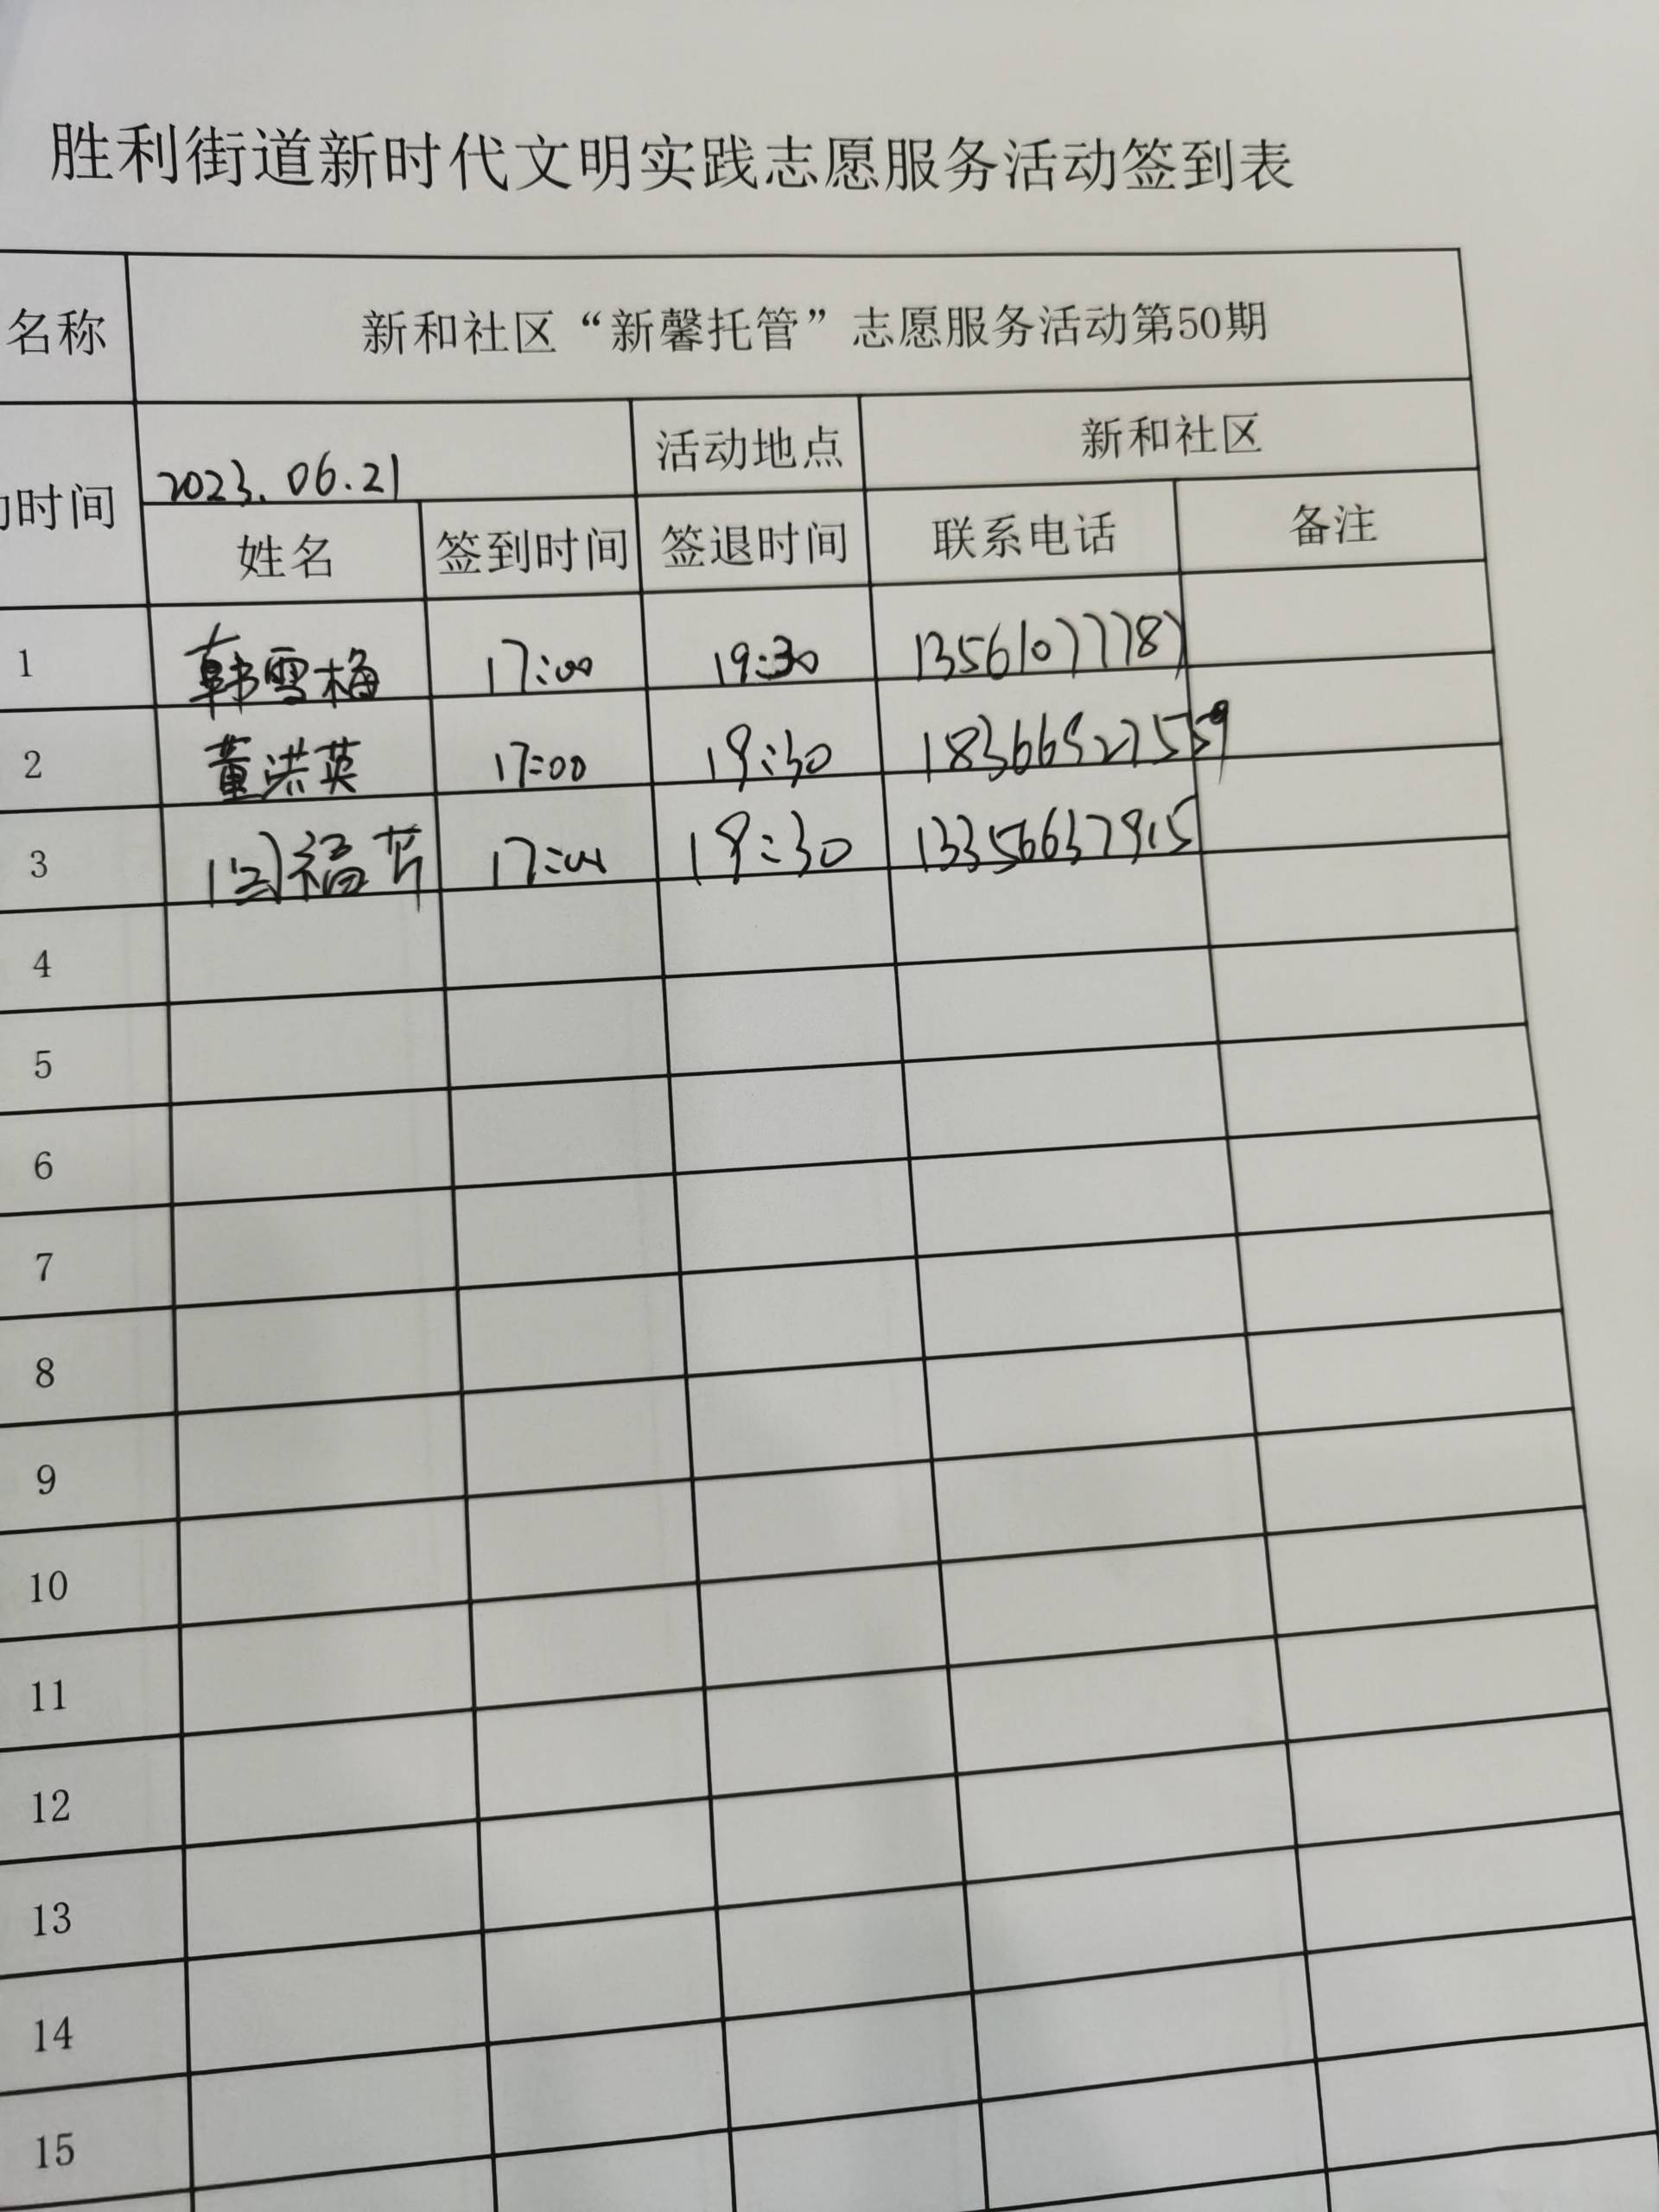 胜利街道新时代文明实践志愿服务活动签到表
名称 新和社区“新馨托管”志愿服务活动第50期
时间 2023.06.21 活动地点 新和社区
姓名 签到时间 签退时间 联系电话 备注
1 韩雪梅 17:00 19:30 13561077787
2 董洪英 17:00 19:30 18366527559
3 闫福芹 17:00 19:30 13356637915
4
5
6
7
8
9
10
11
12
13
14
15